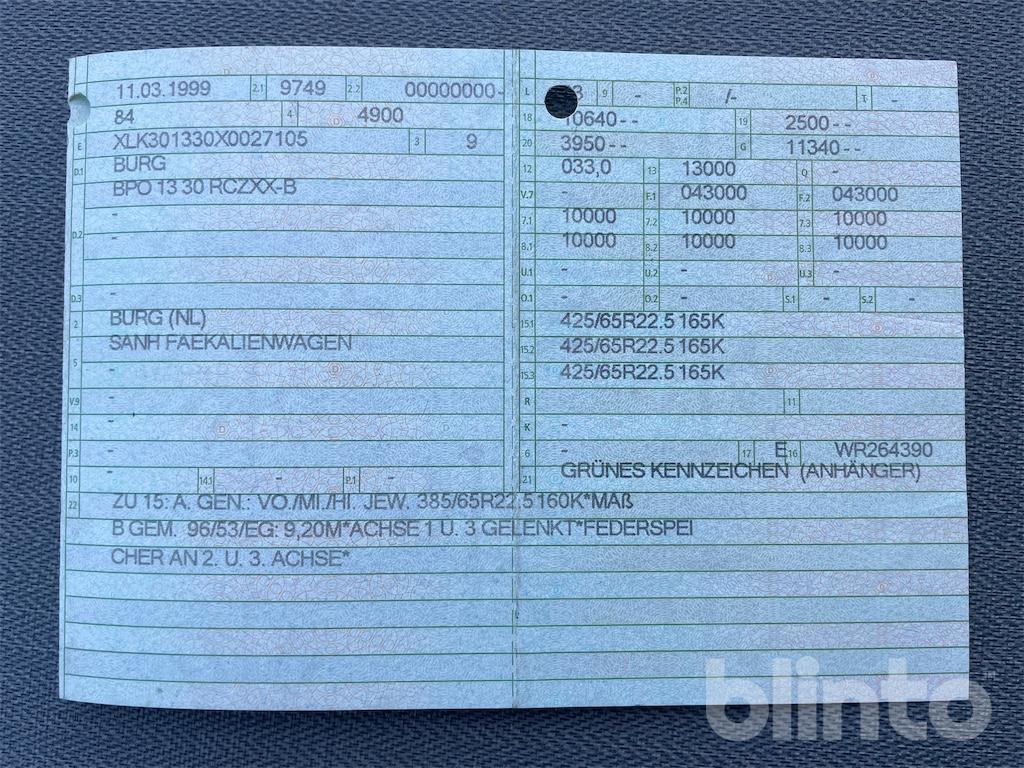 11.03.1999 2.1 9749 2.2 00000000-
84 4 4900
E XLK301330X0027105 3 9
D.1 BURG
BPO 13 30 RCZXX-B
-
D.2 -
D.3 -
2 BURG (NL)
SANH FAEKALIENWAGEN
5 -
V.9 -
14 -
P.3 -
10 - 14.1 - P.1 -
L 3 9 - P.2 P.4 /- T -
18 10640-- 19 2500--
20 3950-- G 11340--
12 033,0 13 13000 Q -
V.7 - F.1 043000 F.2 043000
7.1 10000 7.2 10000 7.3 10000
8.1 10000 8.2 10000 8.3 10000
U.1 - U.2 - U.3 -
O.1 - O.2 - S.1 - S.2 -
15.1 425/65R22.5 165K
15.2 425/65R22.5 165K
15.3 425/65R22.5 165K
R 11
K -
6 - 17 E 16 WR264390
21 GRÜNES KENNZEICHEN (ANHÄNGER)
22 ZU 15: A. GEN.: VO./MI./HI. JEW. 385/65R22.5 160K*MAß
B GEM. 96/53/EG: 9,20M*ACHSE 1 U. 3 GELENKT*FEDERSPEI
CHER AN 2. U. 3. ACHSE*
blinto